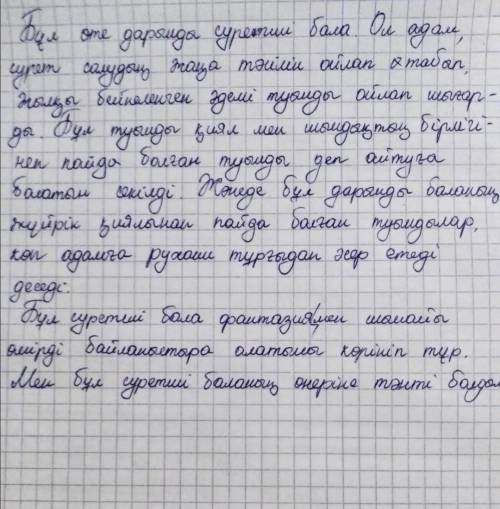 Бұл өте дарынды суретші бала. Ол адам,
сурет салудың жаңа тәйлін ойлап тауып,
жылқы бейнеленген әдемі туынды ойлап шығар-
ды. Бұл туынды қиял мен шындықтың бірлігі-
нен пайда болған туынды деп айтуға
болатын секілді. Және де бұл дарынды баланың
жүйрік қиялынан пайда болған туындылар,
көп адамға рухани тұрғыдан әсер етеді
деседі.
Бұл суретші бала фантазиямен шынайы
өмірді байланыстыра алатыны көрініп тұр.
Мен бұл суретші баланың өнеріне тәнті болдым